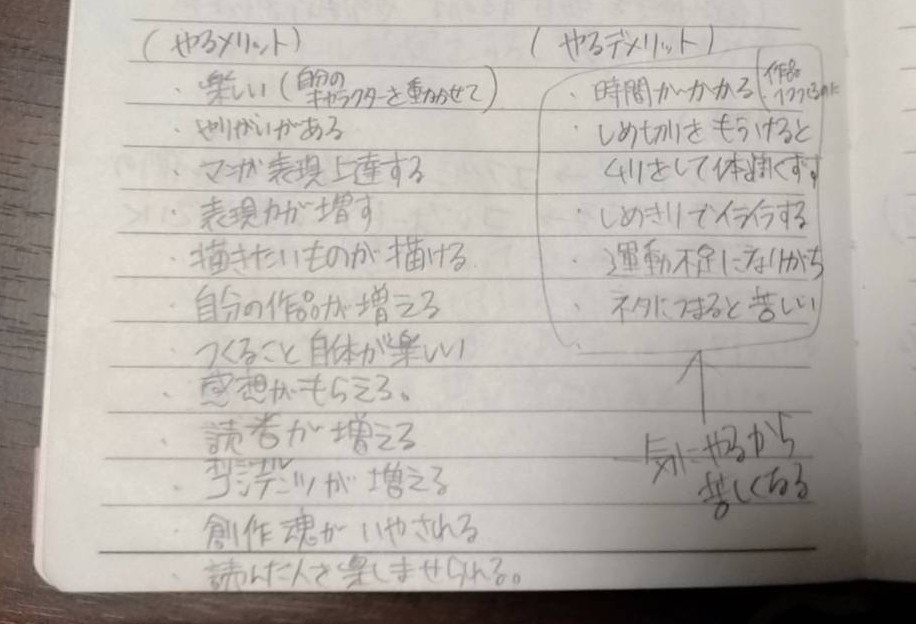 (やるメリット)
・楽しい(自分のキャラクターを動かせて)
・やりがいがある
・マンガ表現上達する
・表現力が増す
・描きたいものが描ける
・自分の作品が増える
・つくること自体が楽しい
・感想がもらえる。
・読者が増える
・オリジナルコンテンツが増える
・創作魂がいやされる
・読んだ人を楽しませられる。
(やるデメリット)
・時間がかかる(作品つくるのに
・しめ切りをもうけると
ムリをして体調くずす
・しめきりでイライラする
・運動不足になりがち
・ネタにつまると苦しい
一気にやるから
苦しくなる